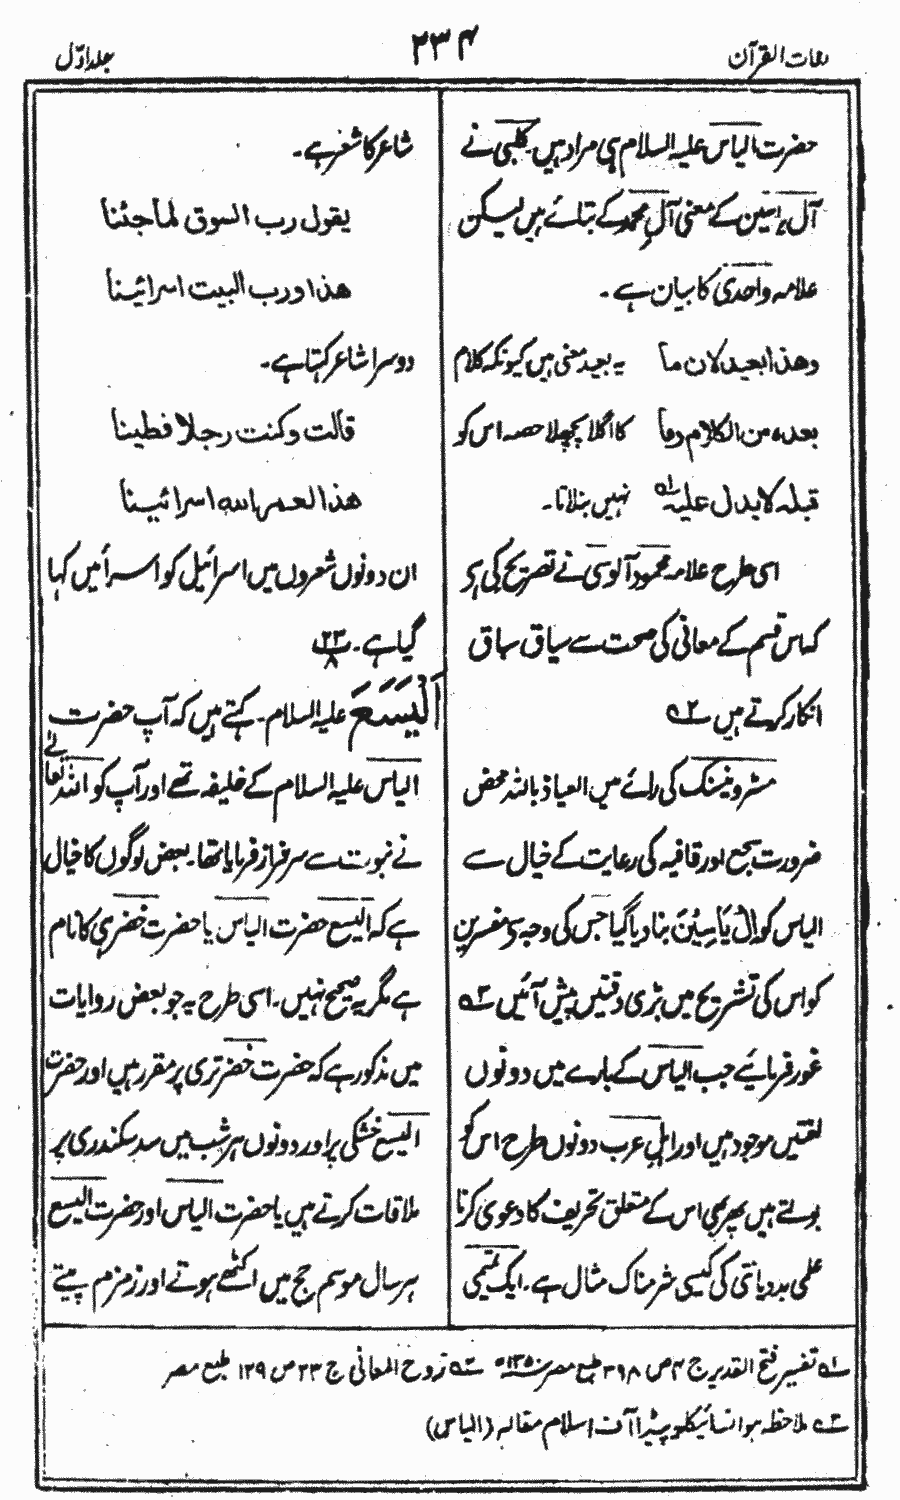 لغات القرآن
۲۳۴
جلد اوّل
حضرت الیاس علیہ السلام ہی مراد ہیں۔ کلبی نے
آل یاسین کے معنی آلِ محمد کے بتائے ہیں لیکن
علامہ واحدی کا بیان ہے۔
وھذا بعید لان ما یہ بعید معنی ہیں کیونکہ کلام
بعدہ من الکلام وما کا اگلا پچھلا حصہ اس کو
قبلہ لا یدل علیہ لہ نہیں بتلاتا۔
اسی طرح علامہ محمود آلوسی نے تصریح کی ہے
کہ اس قسم کے معانی کی صحت سے سیاق سباق
انکار کرتے ہیں ۲؎
مسٹر ونسنک کی رائے میں العیاذ باللہ محض
ضرورت سجع اور قافیہ کی رعایت کے خیال سے
الیاس کو اِلْ یَاسِیْنَ بنا دیا گیا جس کی وجہ سے مفسرین
کو اس کی تشریح میں بڑی دقتیں پیش آئیں ۳؎
غور فرمائیے جب الیاس کے بارے میں دونوں
لغتیں موجود ہیں اور اہلِ عرب دونوں طرح اس کو
بولتے ہیں پھر بھی اس کے متعلق تحریف کا دعویٰ کرنا
علمی بددیانتی کی کیسی شرمناک مثال ہے۔ ایک تمیمی
شاعر کا شعر ہے۔
یقول رب السوق لما جئنا
ھذا ورب البیت اسرائینا
دوسرا شاعر کہتا ہے۔
قالت وکنت رجلا فطینا
ھذا لعمر اللہ اسرائینا
ان دونوں شعروں میں اسرائیل کو اسرأین کہا
گیا ہے۔ ۲۳/۸
اَلْیَسَعَ علیہ السلام۔ کہتے ہیں کہ آپ حضرت
الیاس علیہ السلام کے خلیفہ تھے اور آپ کو اللہ تعالیٰ
نے نبوت سے سرفراز فرمایا تھا۔ بعض لوگوں کا خیال
ہے کہ الیسع حضرت الیاس یا حضرت خضر ہی کا نام
ہے مگر یہ صحیح نہیں۔ اسی طرح یہ جو بعض روایات
میں مذکور ہے کہ حضرت خضر تری پر مقرر ہیں اور حضرت
الیسع خشکی پر اور دونوں ہر شب میں سد سکندری پر
ملاقات کرتے ہیں یا حضرت الیاس اور حضرت الیسع
ہر سال موسم حج میں اکٹھے ہوتے اور زمزم پیتے
۱؎ تفسیر فتح القدیر ج ۴ ص ۳۹۸ طبع مصر ۱۳۵۰ھ ۲؎ روح المعانی ج ۲۳ ص ۱۲۹ طبع مصر
۳؎ ملاحظہ ہو انسائیکلوپیڈیا آف اسلام مقالہ (الیاس)